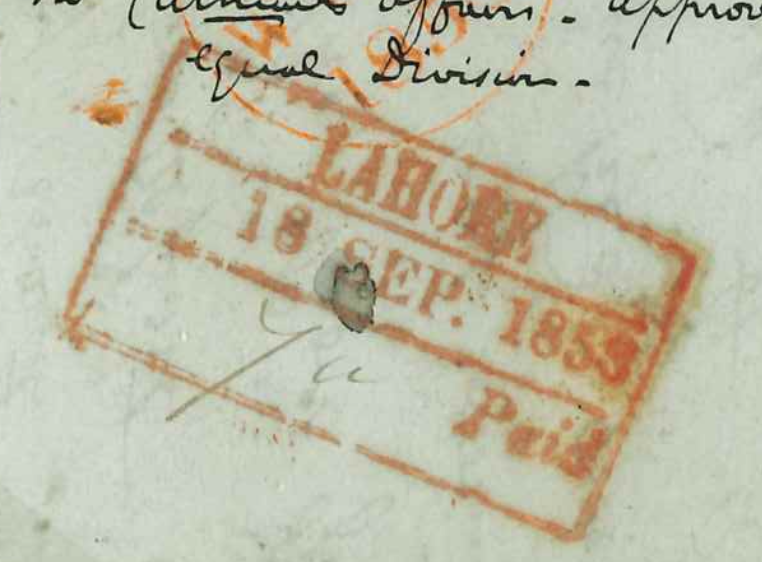 affairs. approv
equal Division.
LAHORE
18 SEP. 1853
Paid